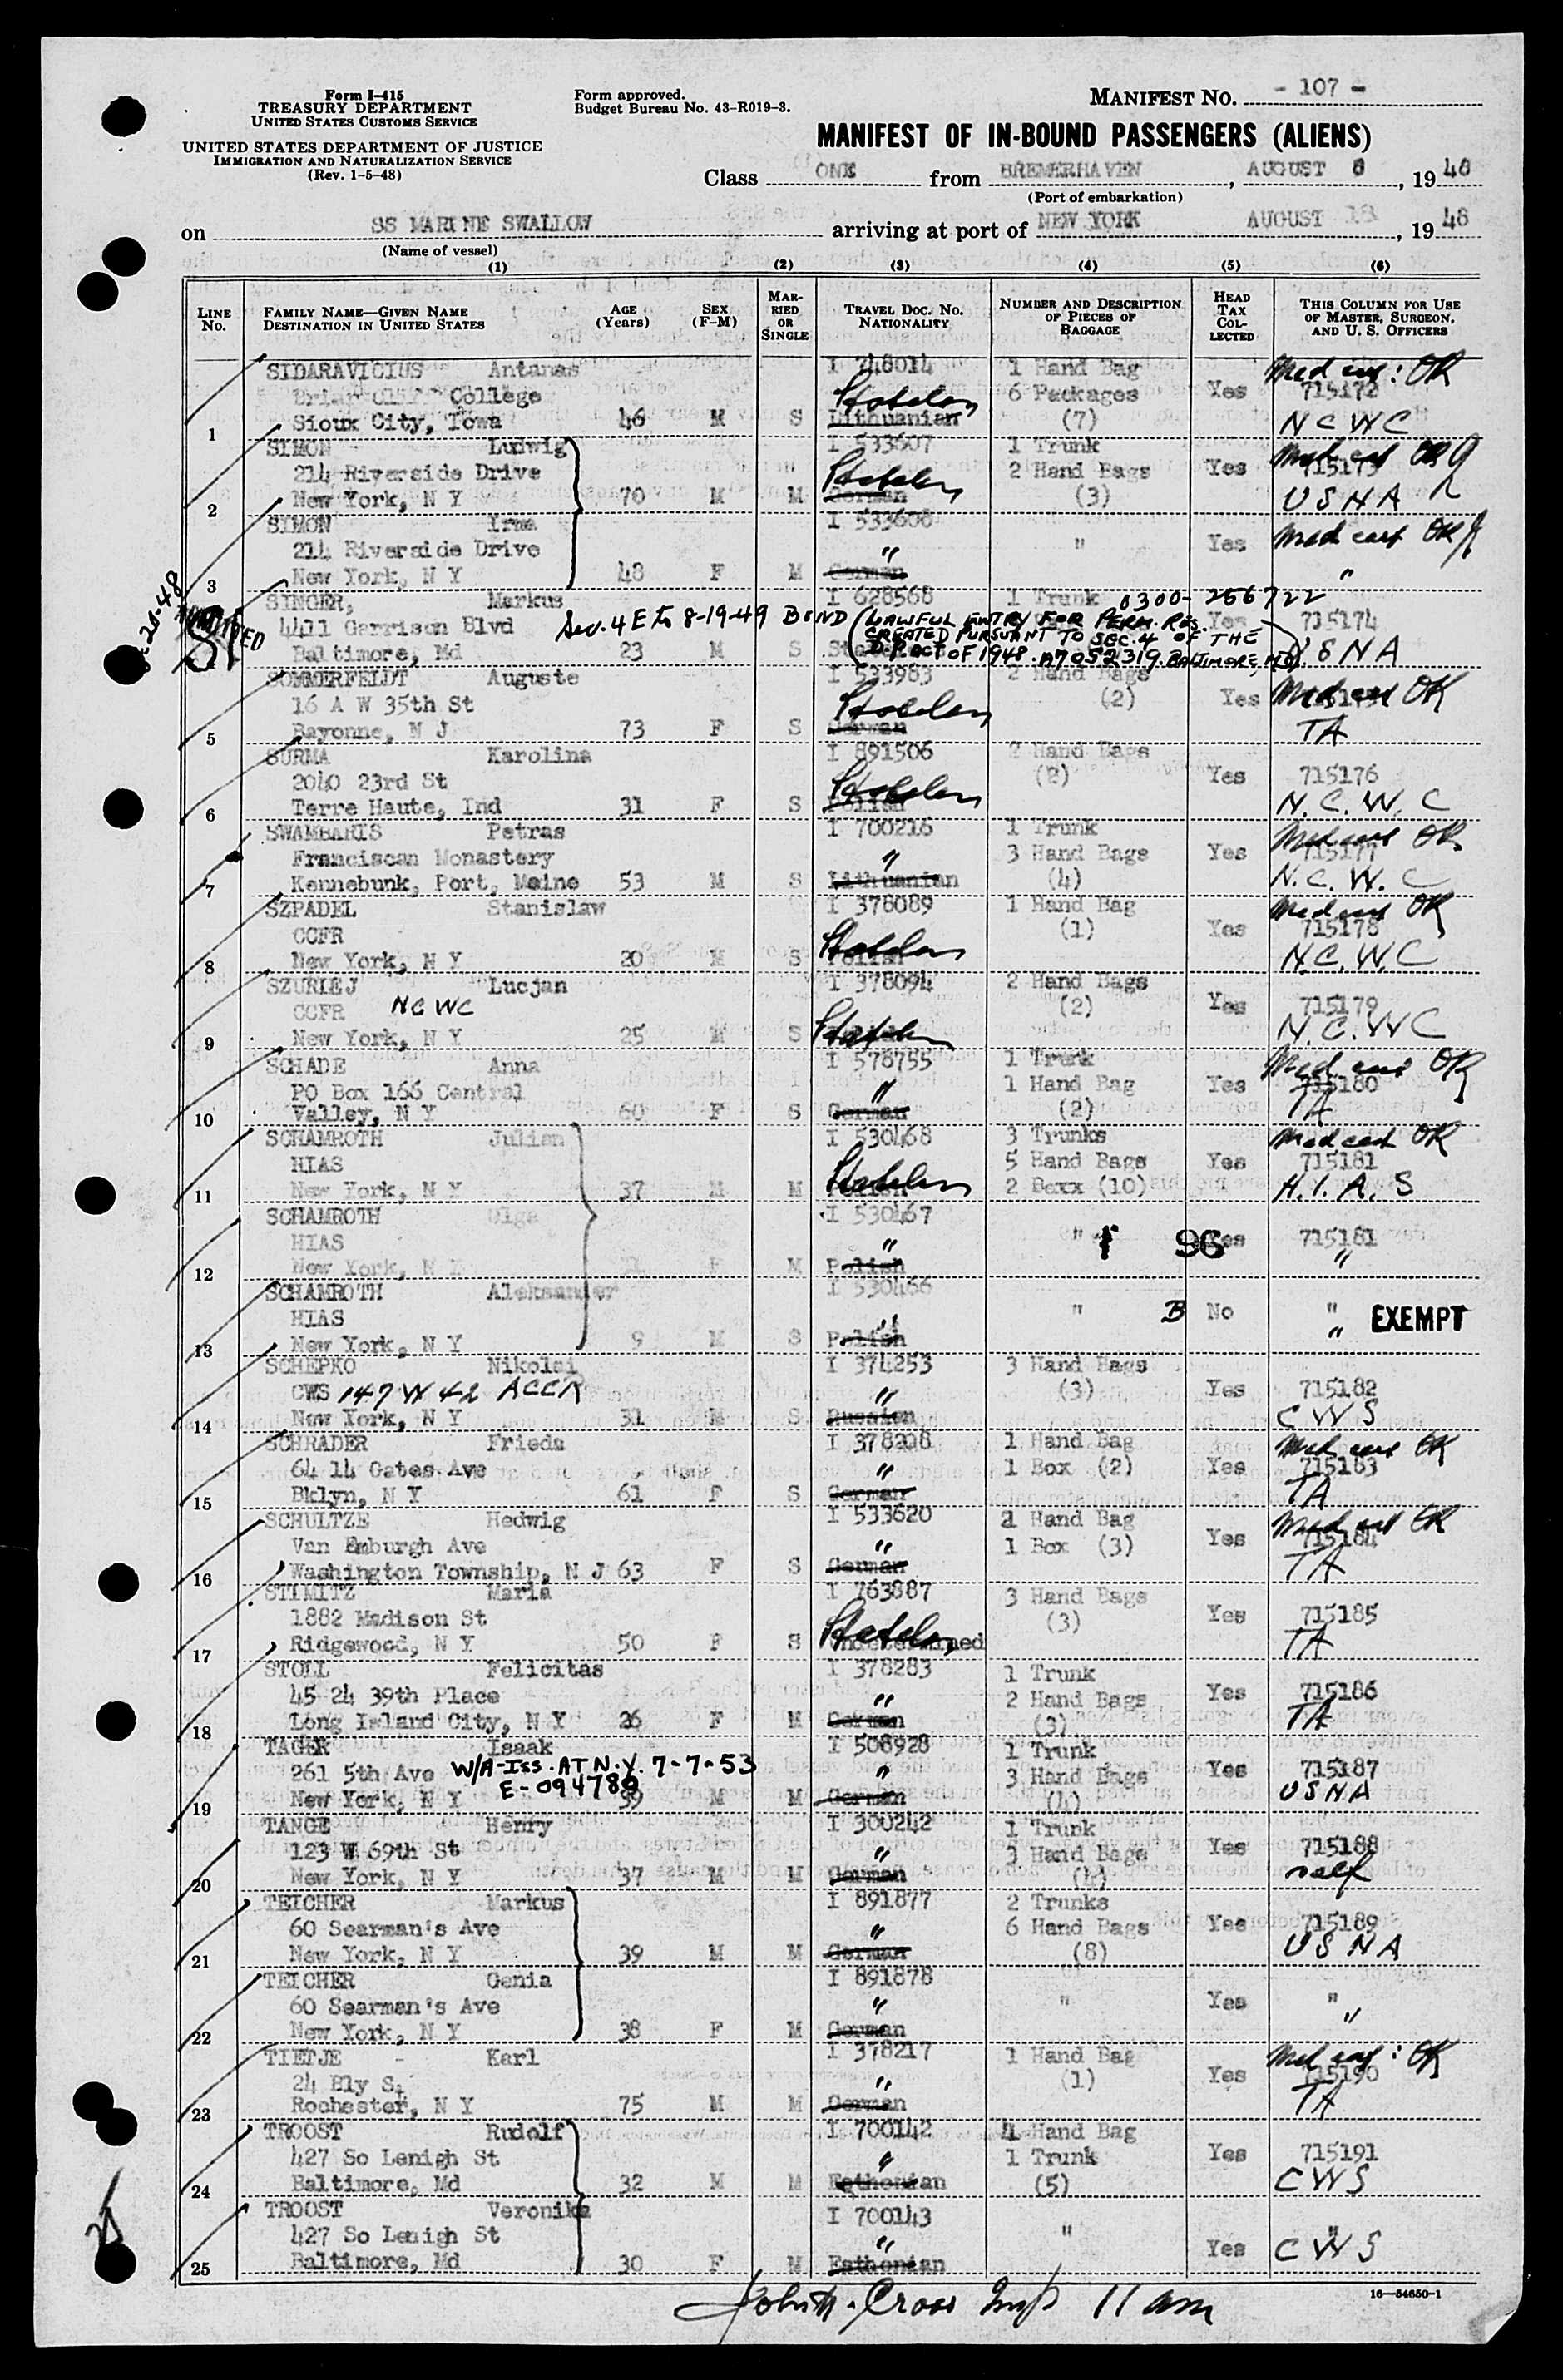 Form I-415
TREASURY DEPARTMENT
UNITED STATES CUSTOMS SERVICE
UNITED STATES DEPARTMENT OF JUSTICE
IMMIGRATION AND NATURALIZATION SERVICE
(Rev. 1-5-48)
Form approved.
Budget Bureau No. 43-R019-3.
MANIFEST NO. - 107 -
MANIFEST OF IN-BOUND PASSENGERS (ALIENS)
Class ONE from BREMERHAVEN, AUGUST 8, 1948
(Port of embarkation)
on SS MARINE SWALLOW arriving at port of NEW YORK AUGUST 18, 1948
(Name of vessel)
(1) (2) (3) (4) (5) (6)
LINE NO.
FAMILY NAME—GIVEN NAME
DESTINATION IN UNITED STATES
AGE (Years)
SEX (F-M)
MARRIED OR SINGLE
TRAVEL DOC. NO. NATIONALITY
NUMBER AND DESCRIPTION OF PIECES OF BAGGAGE
HEAD TAX COLLECTED
THIS COLUMN FOR USE OF MASTER, SURGEON, AND U. S. OFFICERS
SIDARAVICIUS Antanas I 748014 1 Hand Bag Med cert: OK
College Stateless 6 Packages Yes 715172
1 Sioux City, Iowa 46 M S Lithuanian (7) NCWC
SIMON Ludwig I 533607 1 Trunk Med cert OK
214 Riverside Drive Stateless 2 Hand Bags Yes 715173
2 New York, N Y 70 M M German (3) USNA
SIMON Irma I 533608 Med cert OK
214 Riverside Drive " " Yes
3 New York, N Y 48 F M German "
SINGER, Markus I 628568 1 Trunk 0300-256722
4411 Garrison Blvd Sec. 4 E to 8-19-49 BOND (LAWFUL ENTRY FOR PERM. RES. Yes 715174
CREATED PURSUANT TO SEC. 4 OF THE
Baltimore, Md 23 M S D.P. ACT OF 1948. A7052319. BALTIMORE, MD) USNA
ADMITTED
SOMMERFELDT Auguste I 533983 2 Hand Bags Med cert OK
16 A W 35th St Stateless (2) Yes
5 Bayonne, N J 73 F S German TA
SURMA Karolina I 891506 2 Hand Bags
2040 23rd St Stateless (2) Yes 715176
6 Terre Haute, Ind 31 F S Polish N.C.W.C
SWAMBARIS Petras I 700216 1 Trunk Med cert OK
Franciscan Monastery " 3 Hand Bags Yes 715177
7 Kennebunk, Port, Maine 53 M S Lithuanian (4) N.C.W.C
SZPADEL Stanislaw I 378089 1 Hand Bag Med cert OK
CCFR Stateless (1) Yes 715178
8 New York, N Y 20 M S Polish N.C.W.C
SZURLEJ Lucjan I 378094 2 Hand Bags
CCFR NCWC (2) Yes 715179
9 New York, N Y 25 M S Stateless N.C.WC
SCHADE Anna I 578755 1 Trunk Med cert OK
PO Box 166 Central " 1 Hand Bag Yes 715180
10 Valley, N Y 60 F S German (2) TA
SCHAMROTH Julian I 530468 3 Trunks Med cert OK
HIAS Stateless 5 Hand Bags Yes 715181
11 New York, N Y 37 M M 2 Boxx (10) H.I.A.S
SCHAMROTH Olga I 530467
HIAS " " 96 Yes 715181
12 New York, N Y F M Polish "
SCHAMROTH Aleksander I 530466
HIAS " " B No " EXEMPT
13 New York, N Y 9 M S Polish "
SCHEPKO Nikolai I 374253 3 Hand Bags
CWS 147 W 42 ACCR " (3) Yes 715182
14 New York, N Y 31 M S Russian CWS
SCHRADER Frieda I 378208 1 Hand Bag Med cert OK
64 14 Gates Ave " 1 Box (2) Yes 715183
15 Bklyn, N Y 61 F S German TA
SCHULTZE Hedwig I 533620 2 Hand Bag Med cert OK
Van Emburgh Ave " 1 Box (3) Yes 715184
16 Washington Township, N J 63 F S German TA
STIMITZ Maria I 763887 3 Hand Bags
1882 Madison St (3) Yes 715185
17 Ridgewood, N Y 50 F S Stateless Undetermined TA
STOLL Felicitas I 378283 1 Trunk
45 24 39th Place " 2 Hand Bags Yes 715186
18 Long Island City, N Y 26 F M German (3) TA
TAGER Isaak I 508928 1 Trunk
261 5th Ave W/A-Iss. AT N.Y. 7-7-53 " 3 Hand Bags Yes 715187
19 New York, N Y E-094789 39 M M German (4) USNA
TANGE Henry I 300242 1 Trunk
123 W 69th St " 3 Hand Bags Yes 715188
20 New York, N Y 37 M M German (4) self
TEICHER Markus I 891877 2 Trunks
60 Searman's Ave " 6 Hand Bags Yes 715189
21 New York, N Y 39 M M German (8) USNA
TEICHER Genia I 891878
60 Searman's Ave " " Yes "
22 New York, N Y 38 F M German "
TIETJE Karl I 378217 1 Hand Bag Med cert: OK
24 Ely St " (1) Yes 715190
23 Rochester, N Y 75 M M German TA
TROOST Rudolf I 700142 4 Hand Bag
427 So Lenigh St " 1 Trunk Yes 715191
24 Baltimore, Md 32 M M Esthonian (5) CWS
TROOST Veronika I 700143
427 So Lenigh St " " "
25 Baltimore, Md 30 F M Esthonian Yes CWS
25
John H. Cross Insp 11 am
16—54650-1